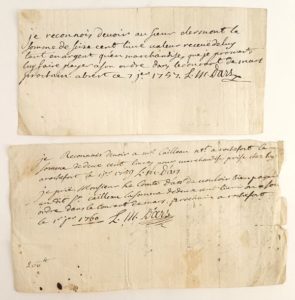 je reconnois devoir au sieur Clermont la
somme de six cent livres valeur receue de luy
tant en argent qu'en marchandise, que je promet
luy faire payer a son ordre dans le courant de mars
prochain a brest ce 7 1757. L. M. Dars
je Reconnois devoir a M. Cailleau a rochefort la
somme de deux cent livres pour marchandise prise chez luy
a rochefort le 1er 1759 L. M. Dars
je prie Monsieur le Comte Dars de vouloir bien payer
au dit Sr. Cailleau la somme de deux cent livres ou a son
ordre dans le courant de mars prochain a rochefort
le 1er 1760 L. M. Dars